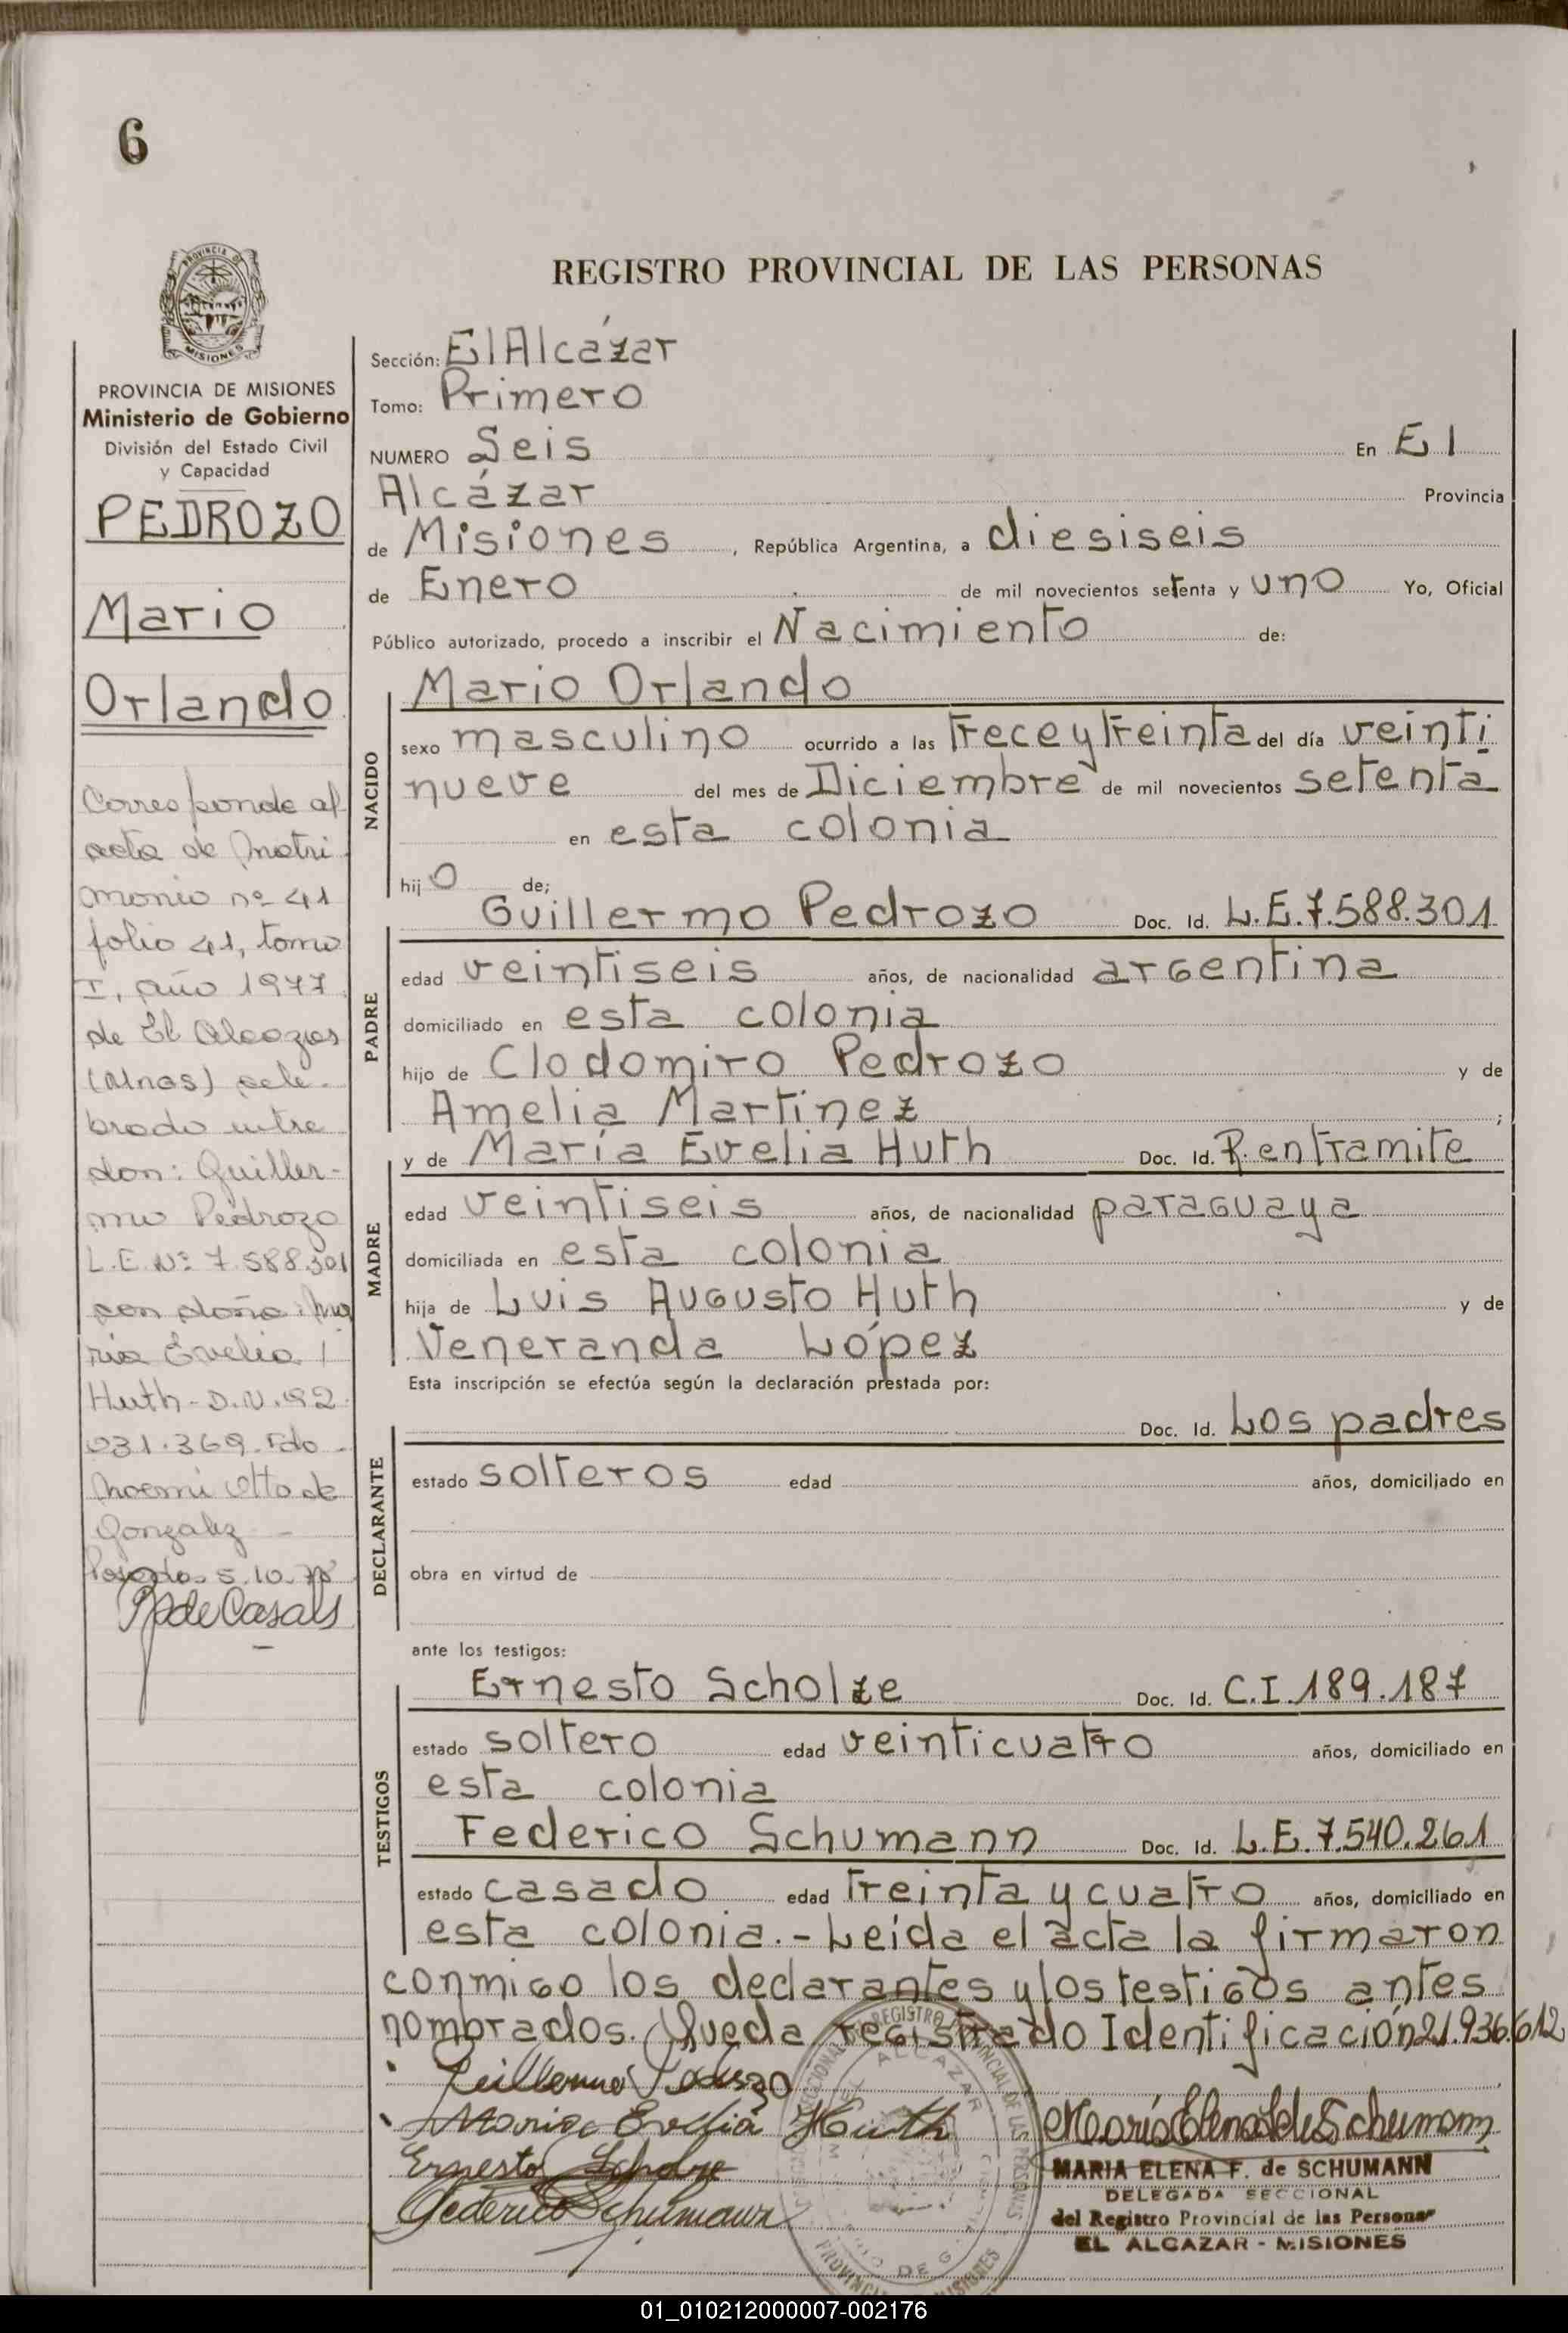 6
PROVINCIA DE
MISIONES
REGISTRO PROVINCIAL DE LAS PERSONAS
PROVINCIA DE MISIONES
Ministerio de Gobierno
División del Estado Civil
y Capacidad
PEDROZO
Mario
Orlando
Corresponde al
acta de Matri
monio nº 41
folio 41, tomo
I, año 1977
de El Alcazar
(Mnes) cele-
brado entre
don: Guiller-
mo Pedrozo
L.E. Nº 7.588.301
con doña: Ma
ria Evelia
Huth - D.N. 92
031.369. Fdo
Noemi Otto de
Gonzalez -
Posadas 5.10.78
de Casals
Sección: El Alcázar
Tomo: Primero
NUMERO Seis En El
Alcázar Provincia
de Misiones , República Argentina, a diesiseis
de Enero de mil novecientos setenta y uno Yo, Oficial
Público autorizado, procedo a inscribir el Nacimiento de:
NACIDO
Mario Orlando
sexo masculino ocurrido a las trece y treinta del día veinti
nueve del mes de Diciembre de mil novecientos setenta
en esta colonia
hijo de;
PADRE
Guillermo Pedrozo Doc. Id. L.E.7.588.301
edad veintiseis años, de nacionalidad argentina
domiciliado en esta colonia
hijo de Clodomiro Pedrozo y de
Amelia Martinez ;
MADRE
y de María Evelia Huth Doc. Id. R. entramite
edad veintiseis años, de nacionalidad paraguaya
domiciliada en esta colonia
hija de Luis Augusto Huth y de
Veneranda López
Esta inscripción se efectúa según la declaración prestada por:
DECLARANTE
Doc. Id. Los padres
estado solteros edad años, domiciliado en
obra en virtud de
ante los testigos:
TESTIGOS
Ernesto Scholze Doc. Id. C.I.189.187
estado soltero edad veinticuatro años, domiciliado en
esta colonia
Federico Schumann Doc. Id. L.E.7.540.261
estado casado edad treinta y cuatro años, domiciliado en
esta colonia.- Leída el acta la firmaron
conmigo los declarantes y los testigos antes
nombrados. Queda registrado Identificación 21.936.612
Guillermo Pedrozo
Maria Evelia Huth
Ernesto Scholze
Federico Schumann
Maria Elena F de Schumann
MARIA ELENA F. de SCHUMANN
DELEGADA SECCIONAL
del Registro Provincial de las Personas
EL ALCAZAR - MISIONES
01_010212000007-002176